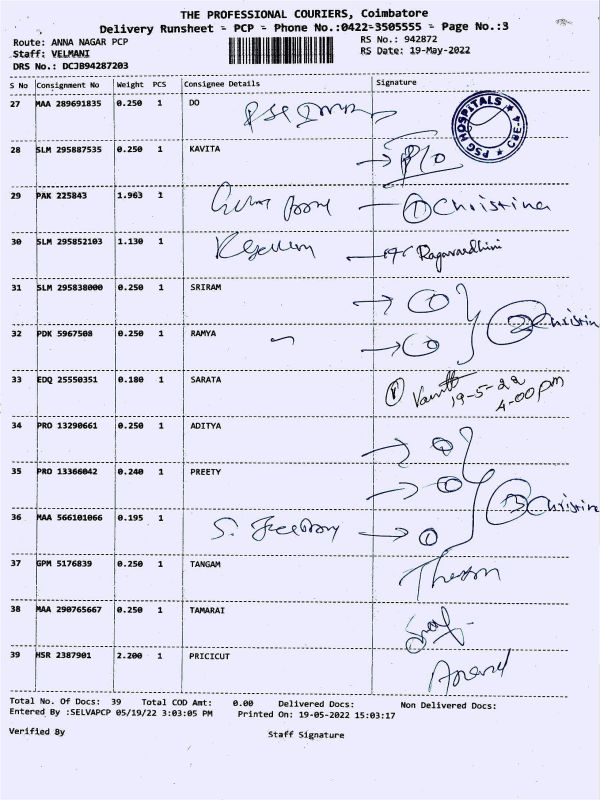 THE PROFESSIONAL COURIERS, Coimbatore
Delivery Runsheet = PCP = Phone No.:0422-3505555 = Page No.:3
Route: ANNA NAGAR PCP
RS No.: 942872
Staff: VELMANI
RS Date: 19-May-2022
DRS No.: DCJB94287203
S No Consignment No Weight PCS Consignee Details Signature
27 MAA 289691835 0.250 1 DO
PSG HOSPITALS CBE-4
28 SLM 295887535 0.250 1 KAVITA
29 PAK 225843 1.963 1 1 Christina
30 SLM 295852103 1.130 1 Ragavardhini
31 SLM 295838000 0.250 1 SRIRAM 1
2 Christin
32 PDK 5967508 0.250 1 RAMYA 1
33 EDQ 25550351 0.180 1 SARATA
19-5-22
4-00 pm
34 PRO 13290661 0.250 1 ADITYA 1
35 PRO 13366042 0.240 1 PREETY 1
3 Christin
36 MAA 566101066 0.195 1 S. 1
37 GPM 5176839 0.250 1 TANGAM
38 MAA 290765667 0.250 1 TAMARAI
39 HSR 2387901 2.200 1 PRICICUT
Total No. Of Docs: 39 Total COD Amt: 0.00 Delivered Docs: Non Delivered Docs:
Entered By :SELVAPCP 05/19/22 3:03:05 PM Printed On: 19-05-2022 15:03:17
Verified By
Staff Signature